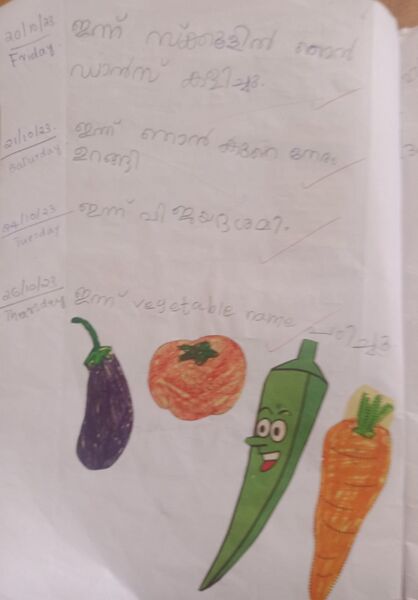 20/10/23
Friday
ഇന്ന് സ്ക്കൂളിൽ ഞാൻ
ഡാൻസ് കളിച്ചു.
21/10/23
Saturday
ഇന്ന് ഞാൻ കുറെ നേരം
ഉറങ്ങി
24/10/23
Tuesday
ഇന്ന് വിജയദശമി.
26/10/23
Thursday
ഇന്ന് vegetable name പഠിച്ചു